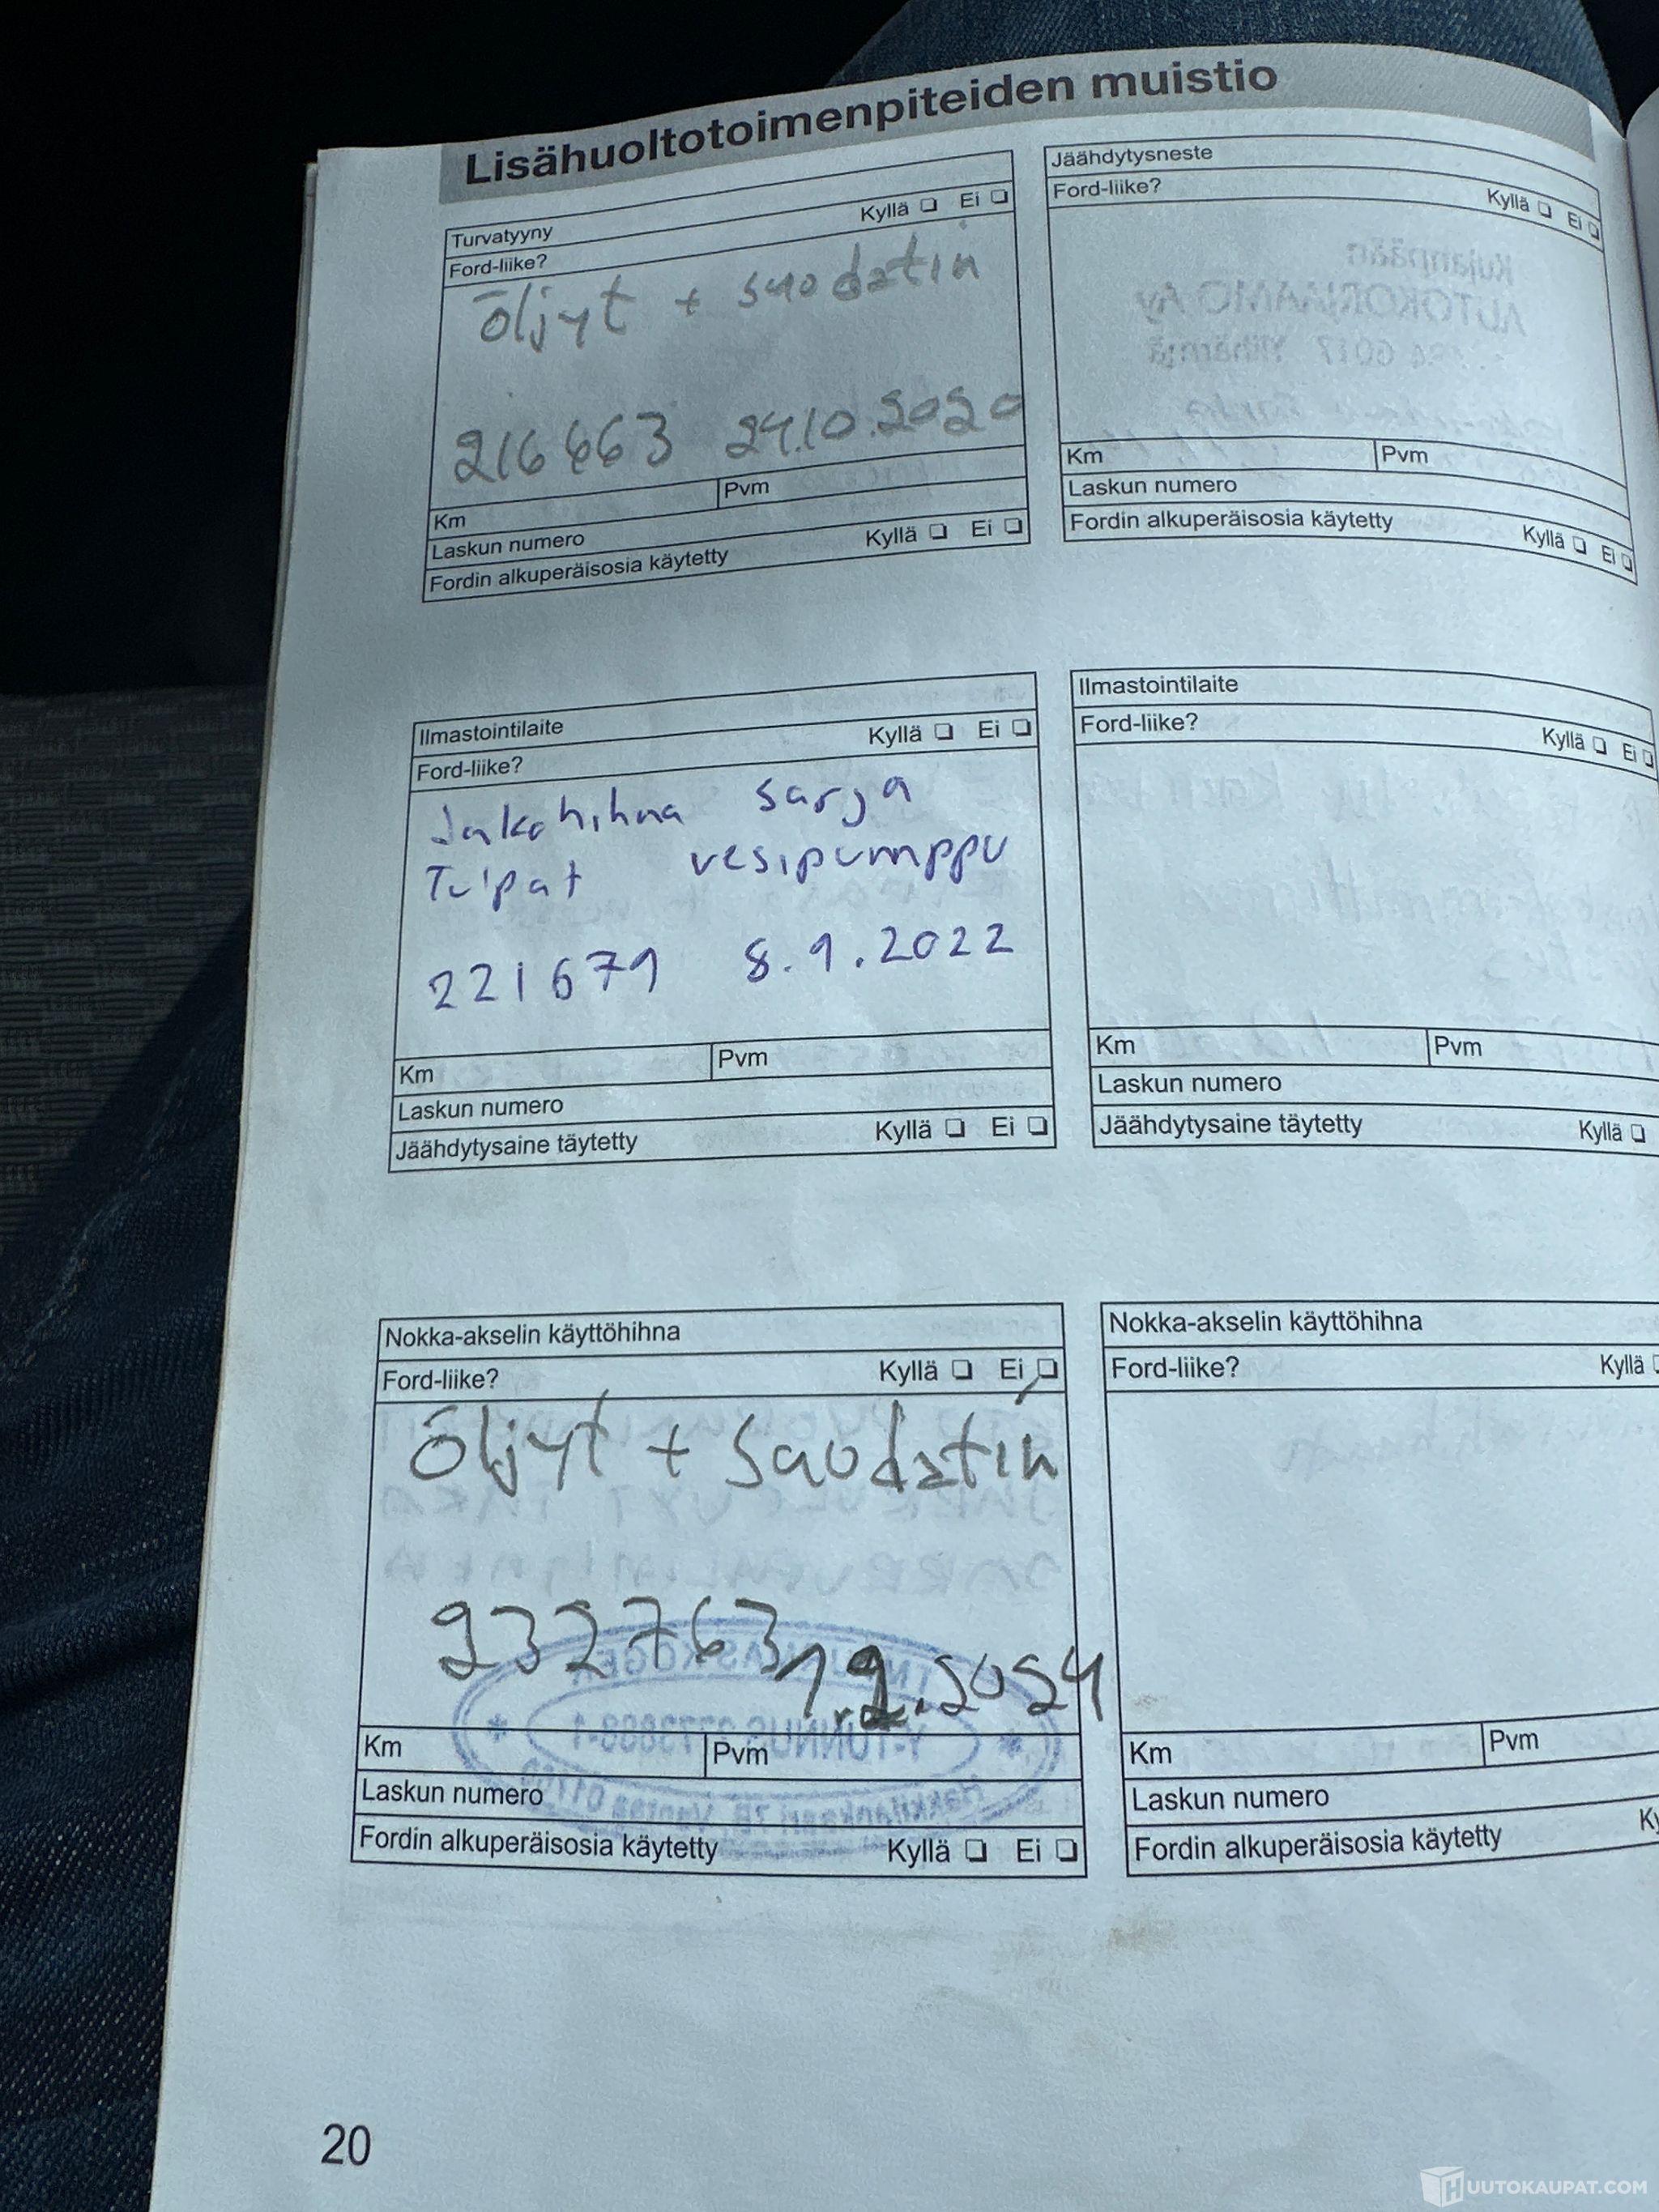 Lisähuoltotoimenpiteiden muistio
Turvatyyny
Ford-liike? Kyllä ❏ Ei ❏
öljyt + suodatin
216663 24.10.2020
Km Pvm
Laskun numero
Fordin alkuperäisosia käytetty Kyllä ❏ Ei ❏
Jäähdytysneste
Ford-liike? Kyllä ❏ Ei ❏
Km Pvm
Laskun numero
Fordin alkuperäisosia käytetty Kyllä ❏ Ei ❏
Ilmastointilaite
Ford-liike? Kyllä ❏ Ei ❏
Jakohihna sarja
Tulpat vesipumppu
221679 8.9.2022
Km Pvm
Laskun numero
Jäähdytysaine täytetty Kyllä ❏ Ei ❏
Ilmastointilaite
Ford-liike? Kyllä ❏ Ei ❏
Km Pvm
Laskun numero
Jäähdytysaine täytetty Kyllä ❏
Nokka-akselin käyttöhihna
Ford-liike? Kyllä ❏ Ei ❏
Öljyt + Suodatin
232763 1.2.2024
Km Pvm
Laskun numero
Fordin alkuperäisosia käytetty Kyllä ❏ Ei ❏
Nokka-akselin käyttöhihna
Ford-liike? Kyllä
Km Pvm
Laskun numero
Fordin alkuperäisosia käytetty Ky
20
HUUTOKAUPAT.COM